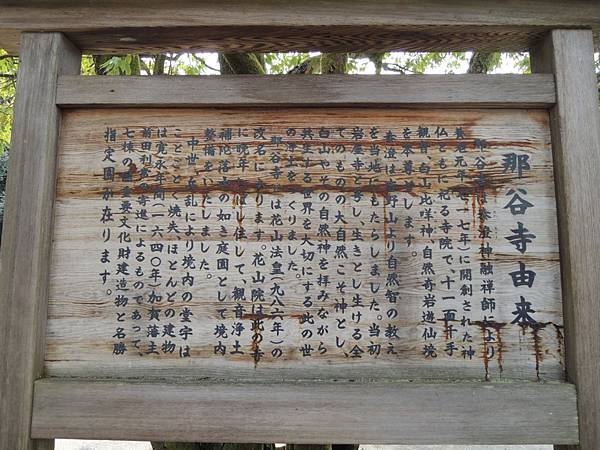 那谷寺由来
那谷寺は泰澄神融禅師により
養老元年(七一七年)に開創された神
仏ともに祀る寺院で、十一面千手
観音、白山比咩神、自然奇岩遊仙境
を本尊とします。
泰澄は 野山より自然智の教え
を当地にもたらしました。当初
岩屋寺と号し、生きとし生ける全
てのものの大自然こそ神とし、
白山やその自然神を拝みながら
共生する世界を大切にする此の世
の浄土をつくりました。
那谷寺は花山法皇(九八六年)の
改名になります。花山院は此の寺
に晩年を して、観音浄土
補陀落山の如き庭園として境内
整備をいたしました。
中世、争乱により境内の堂宇は
ことごとく焼失、ほとんどの建物
は寛永年間(一六四〇年)加賀藩主
前田利常の寄進によるものであって、
七棟の重要文化財建造物と名勝
指定園が在ります。